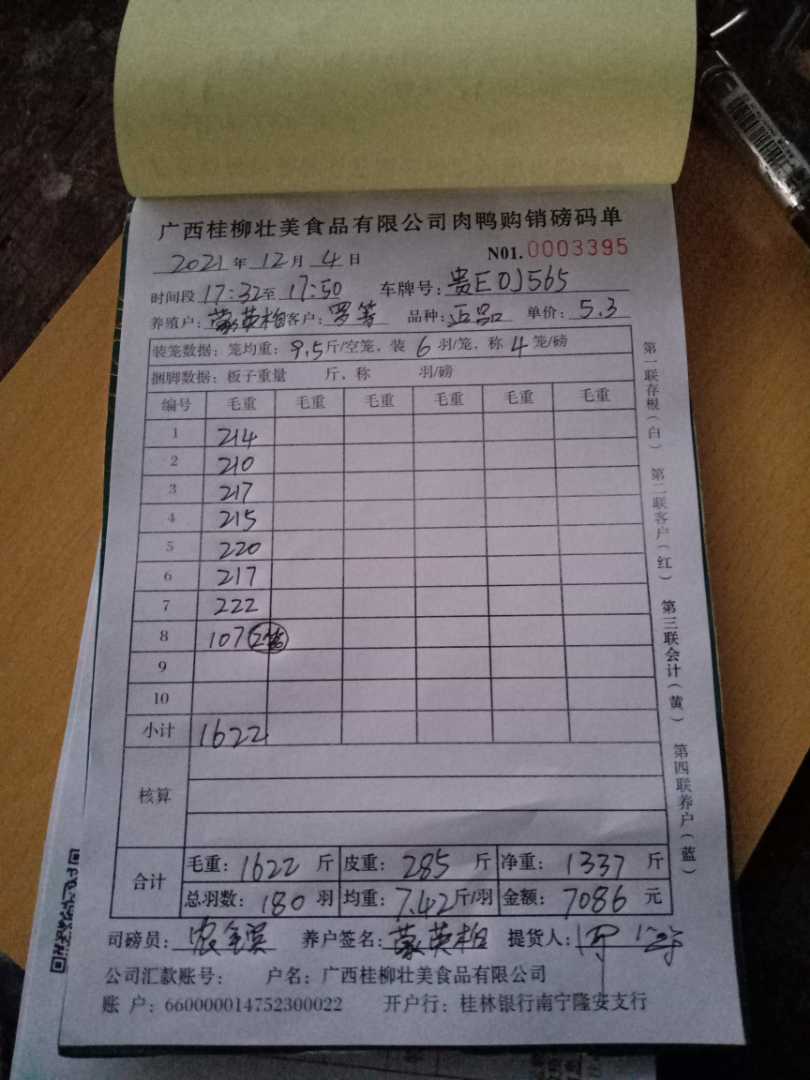 广西桂柳壮美食品有限公司肉鸭购销磅码单
2021年12月4日 N01.0003395
时间段17:32至17:50 车牌号:贵E0J565
养殖户:蒙英柏 客户:罗等 品种:正品 单价:5.3
装笼数据:笼均重:9.5斤/空笼,装6羽/笼,称4笼/磅
捆脚数据:板子重量 斤,称 羽/磅
编号 毛重 毛重 毛重 毛重 毛重 毛重
1 214
2 210
3 217
4 215
5 220
6 217
7 222
8 107 2笼
9
10
小计 1622
核算
合计 毛重:1622斤 皮重:285斤 净重:1337斤
总羽数:180羽 均重:7.42斤/羽 金额:7086元
司磅员: 养户签名:蒙英柏 提货人:
公司汇款账号: 户名:广西桂柳壮美食品有限公司
账 户:660000014752300022 开户行:桂林银行南宁隆安支行
第一联存根(白) 第二联客户(红) 第三联会计(黄) 第四联养户(蓝)